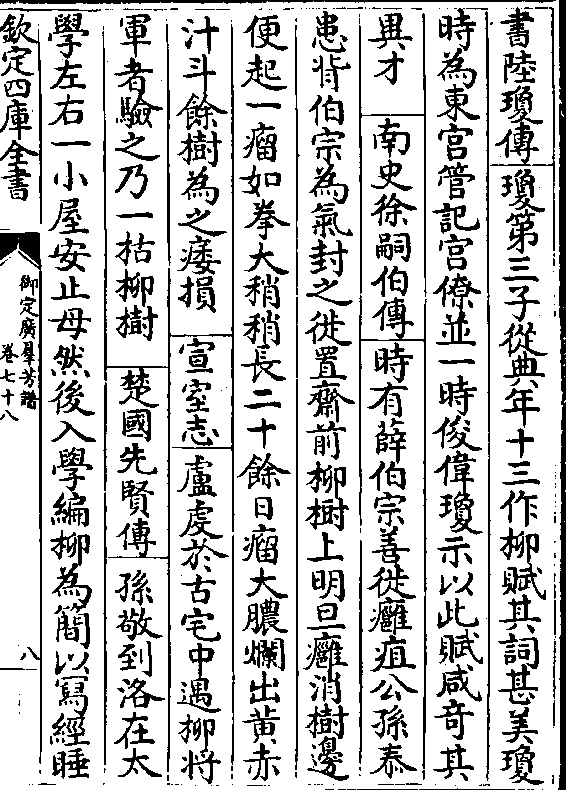 書陸瓊傳 瓊第三子從典年十三作柳賦其詞甚美瓊
時為東宮管記宮僚並一時俊偉瓊示以此賦咸奇其
異才 南史徐嗣伯傳 時有薛伯宗善徙癰疽公孫泰
患背伯宗為氣封之徙置齋前柳樹上明旦癰消樹邊
便起一瘤如拳大稍稍長二十餘日瘤大膿爛出黄赤
汁斗餘樹為之痿損 宣室志 盧虔於古宅中遇柳將
軍者驗之乃一枯柳樹 楚國先賢傳 孫敬到洛在太
學左右一小屋安止母然後入學編柳為簡以寫經睡
欽定四庫全書
御定廣羣芳譜
卷七十八
八